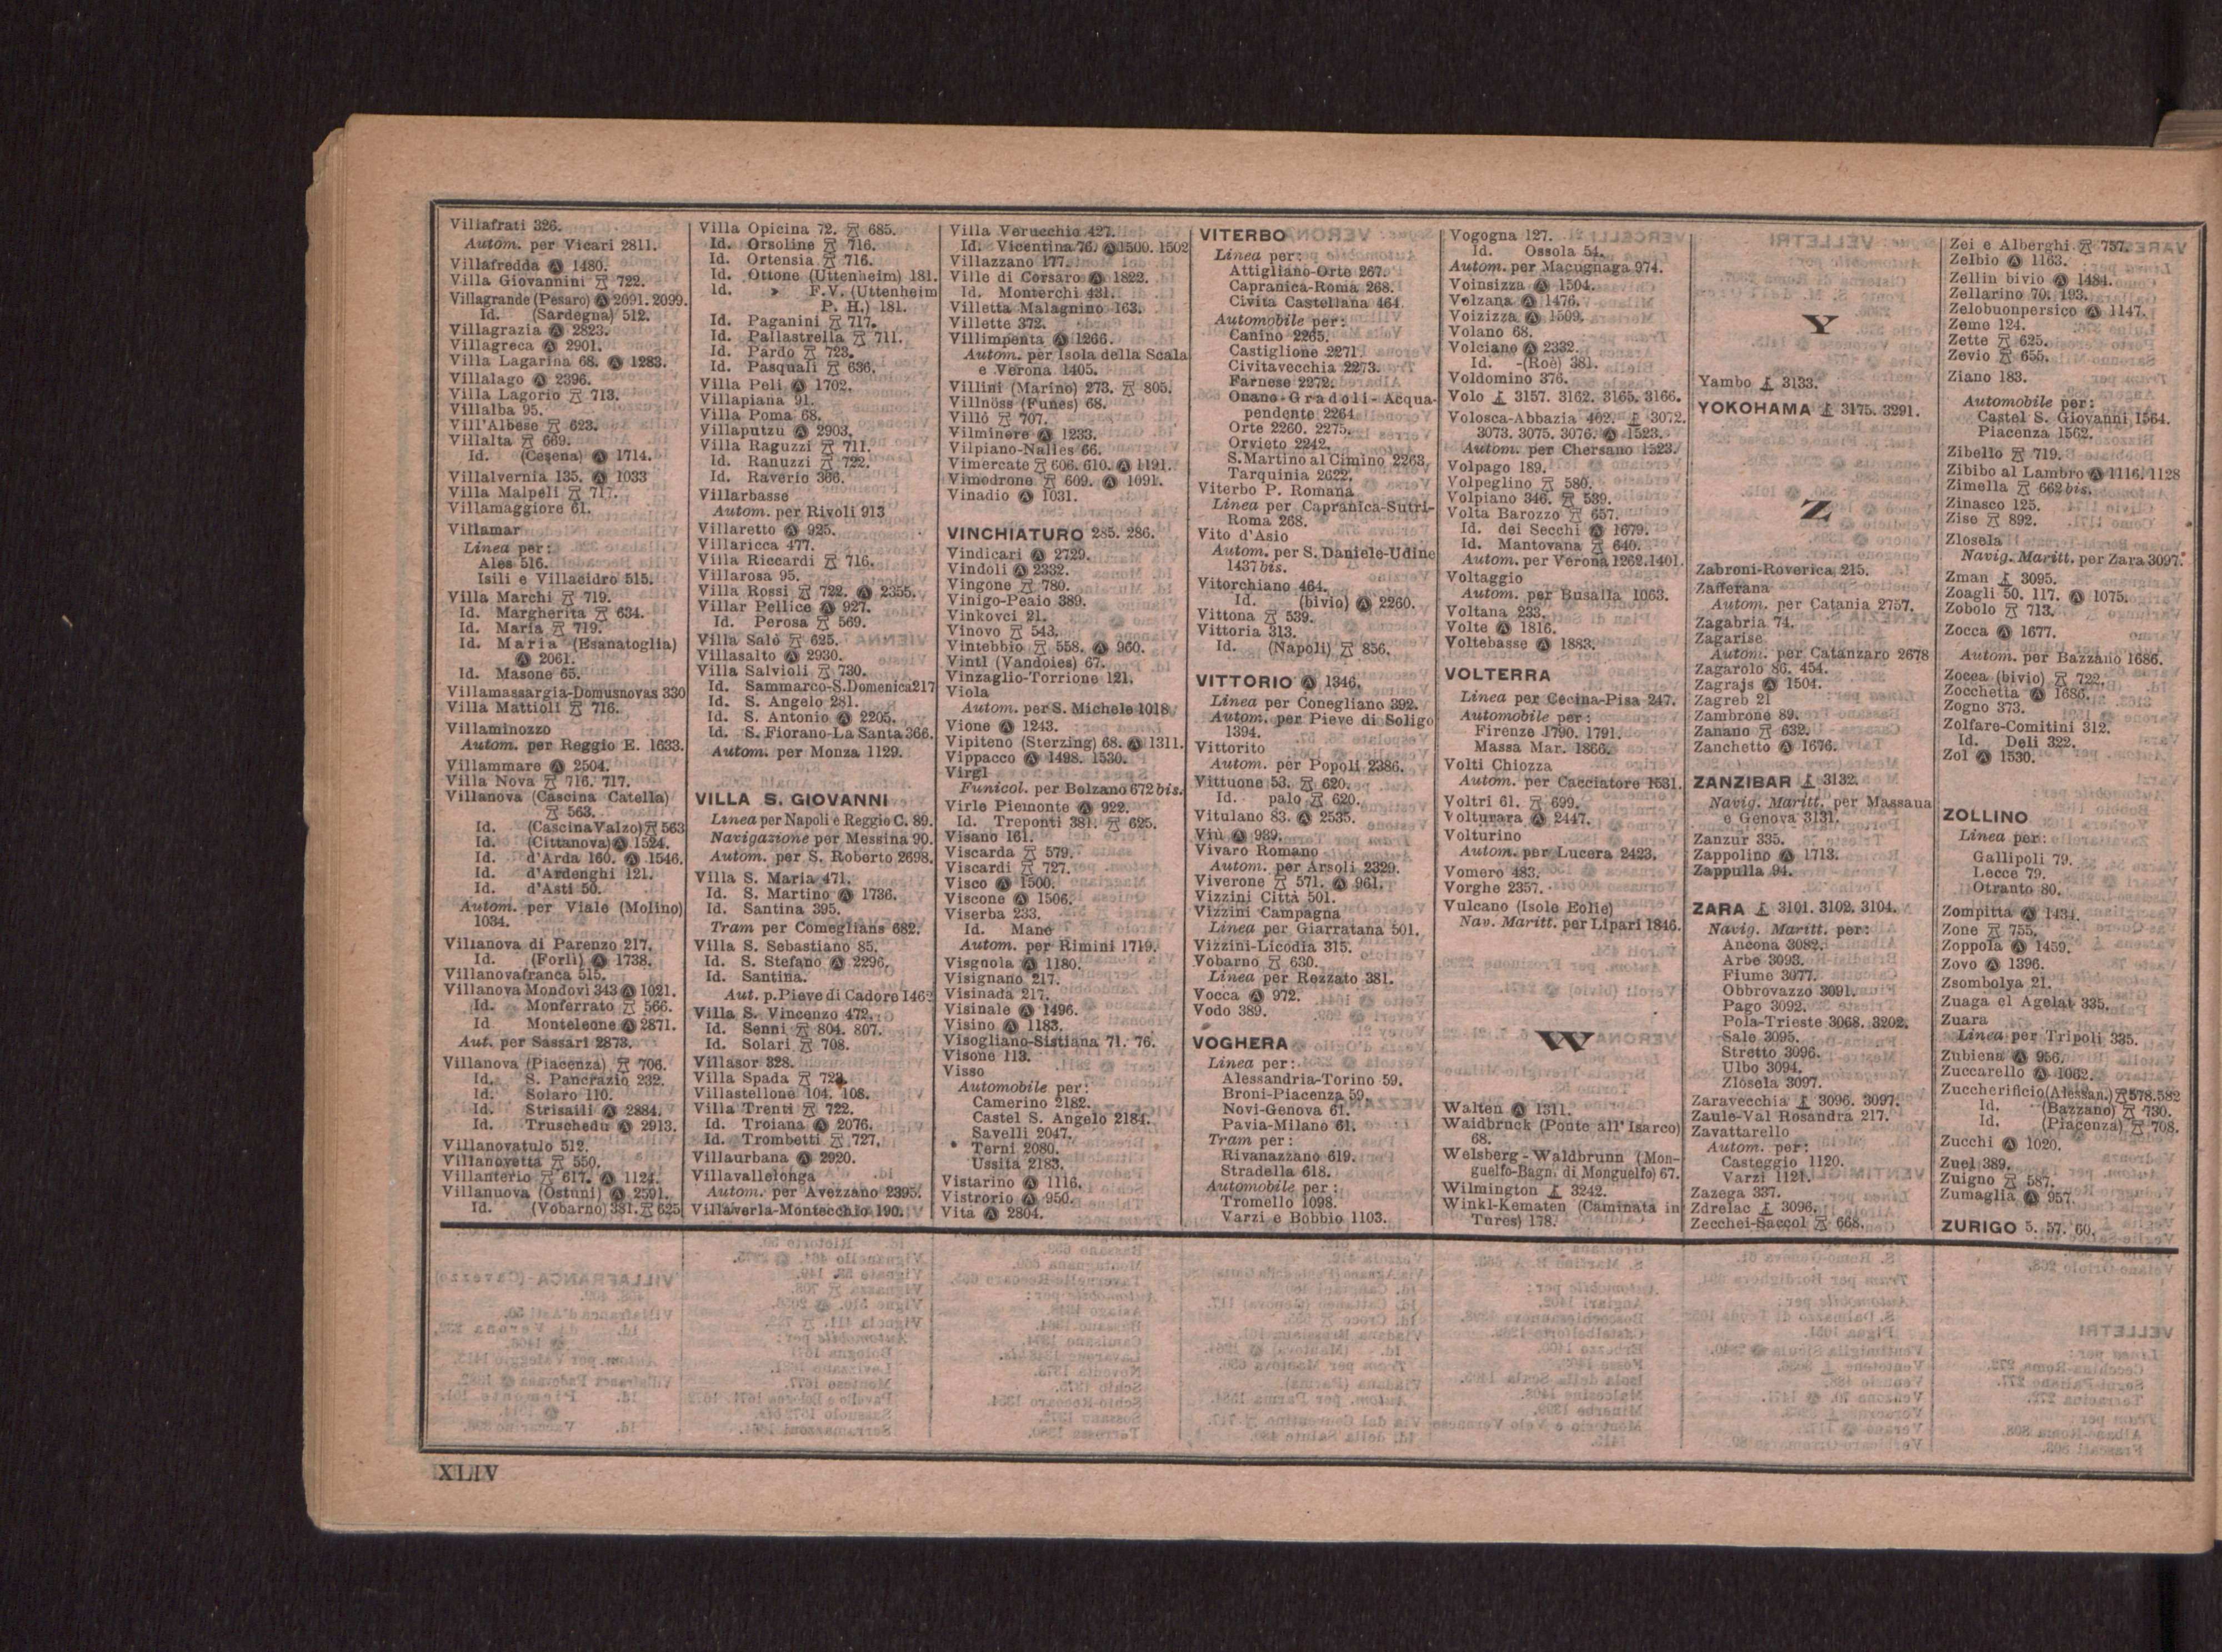 Villafrati 326.
Autom. per Vicari 2811.
Villafredda Ⓐ 1480.
Villa Giovannini 722.
Villagrande (Pesaro) Ⓐ 2091. 2099.
Id. (Sardegna) 512.
Villagrazia Ⓐ 2823.
Villagreca Ⓐ 2901.
Villa Lagarina 68. Ⓐ 1283.
Villalago Ⓐ 2396.
Villa Lagorio 713.
Villalba 95.
Vill'Albese 623.
Villalta 669.
Id. (Cesena) Ⓐ 1714.
Villalvernia 135. Ⓐ 1033
Villa Malpeli 717.
Villamaggiore 61.
Villamar
Linea per:
Ales 516.
Isili e Villacidro 515.
Villa Marchi 719.
Id. Margherita 634.
Id. Maria 719.
Id. Maria (Esanatoglia)
Ⓐ 2061.
Id. Masone 65.
Villamassargia-Domusnovas 330
Villa Mattioli 716.
Villaminozzo
Autom. per Reggio E. 1633.
Villammare Ⓐ 2504.
Villa Nova 716. 717.
Villanova (Cascina Catella)
563.
Id. (Cascina Valzo) 563
Id. (Cittanova) Ⓐ 1524.
Id. d'Arda 160. Ⓐ 1546.
Id. d'Ardenghi 121.
Id. d'Asti 50.
Autom. per Viale (Molino)
1034.
Villanova di Parenzo 217.
Id. (Forlì) Ⓐ 1738.
Villanovafranca 515.
Villanova Mondovì 343 Ⓐ 1021.
Id. Monferrato 566.
Id Monteleone Ⓐ 2871.
Aut. per Sassari 2873.
Villanova (Piacenza) 706.
Id. S. Pancrazio 232.
Id. Solaro 110.
Id. Strisaili Ⓐ 2884.
Id. Truschedu Ⓐ 2913.
Villanovatulo 512.
Villanovetta 550.
Villanterio 617. Ⓐ 1124.
Villanuova (Ostuni) Ⓐ 2591.
Id. (Vobarno) 381. 625
Villa Opicina 72. 685.
Id. Orsoline 716.
Id. Ortensia 716.
Id. Ottone (Uttenheim) 181.
Id. » F.V. (Uttenheim
P. H.) 181.
Id. Paganini 717.
Id. Pallastrella 711.
Id. Pardo 723.
Id. Pasquali 636.
Villa Peli Ⓐ 1702.
Villapiana 91.
Villa Poma 68.
Villaputzu Ⓐ 2903.
Villa Raguzzi 711.
Id. Ranuzzi 722.
Id. Raverio 366.
Villarbasse
Autom. per Rivoli 913
Villaretto Ⓐ 925.
Villaricca 477.
Villa Riccardi 716.
Villarosa 95.
Villa Rossi 722. Ⓐ 2355.
Villar Pellice Ⓐ 927.
Id. Perosa 569.
Villa Salò 625.
Villasalto Ⓐ 2930.
Villa Salvioli 730.
Id. Sammarco-S.Domenica 217
Id. S. Angelo 281.
Id. S. Antonio Ⓐ 2205.
Id. S. Fiorano-La Santa 366.
Autom. per Monza 1129.
VILLA S. GIOVANNI
Linea per Napoli e Reggio C. 89.
Navigazione per Messina 90.
Autom. per S. Roberto 2698.
Villa S. Maria 471.
Id. S. Martino Ⓐ 1736.
Id. Santina 395.
Tram per Comeglians 682.
Villa S. Sebastiano 85.
Id. S. Stefano Ⓐ 2296.
Id. Santina.
Aut. p. Pieve di Cadore 1462
Villa S. Vincenzo 472.
Id. Senni 804. 807.
Id. Solari 708.
Villasor 328.
Villa Spada
Villastellone 104. 108.
Villa Trenti 722.
Id. Troiana Ⓐ 2076.
Id. Trombetti 727.
Villaurbana Ⓐ 2920.
Villavallelonga
Autom. per Avezzano 2395.
Villaverla-Montecchio 190.
Villa Verucchio 427.
Id. Vicentina 76. Ⓐ 1500. 1502
Villazzano 177.
Ville di Corsaro Ⓐ 1822.
Id. Monterchi 431.
Villetta Malagnino 163.
Villette 372.
Villimpenta Ⓐ 1266.
Autom. per Isola della Scala
e Verona 1405.
Villini (Marino) 273. 805.
Villnöss (Funes) 68.
Villò 707.
Vilminore Ⓐ 1233.
Vilpiano-Nalles 66.
Vimercate 606. 610. Ⓐ 1191.
Vimodrone 609. Ⓐ 1091.
Vinadio Ⓐ 1031.
VINCHIATURO 285. 286.
Vindicari Ⓐ 2729.
Vindoli Ⓐ 2332.
Vingone 780.
Vinigo-Peaio 389.
Vinkovci 21.
Vinovo 543.
Vintebbio 558. Ⓐ 960.
Vintl (Vandoies) 67.
Vinzaglio-Torrione 121.
Viola
Autom. per S. Michele 1018
Vione Ⓐ 1243.
Vipiteno (Sterzing) 68. Ⓐ 1311.
Vippacco Ⓐ 1498. 1530.
Virgl
Funicol. per Bolzano 672 bis.
Virle Piemonte Ⓐ 922.
Id. Treponti 381. 625.
Visano 161.
Viscarda 579.
Viscardi 727.
Visco Ⓐ 1500.
Viscone Ⓐ 1506.
Viserba 233.
Id. Mane
Autom. per Rimini 1719.
Visgnola Ⓐ 1180.
Visignano 217.
Visinada 217.
Visinale Ⓐ 1496.
Visino Ⓐ 1183.
Visogliano-Sistiana 71. 76.
Visone 113.
Visso
Automobile per:
Camerino 2182.
Castel S. Angelo 2184.
Savelli 2047.
Terni 2080.
Ussita 2183.
Vistarino Ⓐ 1116.
Vistrorio Ⓐ 950.
Vita Ⓐ 2804.
VITERBO
Linea per:
Attigliano-Orte 267.
Capranica-Roma 268.
Civita Castellana 464.
Automobile per:
Canino 2265.
Castiglione 2271.
Civitavecchia 2273.
Farnese 2272.
Onano-Gradoli-Acqua-
pendente 2264.
Orte 2260. 2275.
Orvieto 2242.
S. Martino al Cimino 2263.
Tarquinia 2622.
Viterbo P. Romana
Linea per Capranica-Sutri-
Roma 268.
Vito d'Asio
Autom. per S. Daniele-Udine
1437 bis.
Vitorchiano 464.
Id. (bivio) Ⓐ 2260.
Vittona 539.
Vittoria 313.
Id. (Napoli) 856.
VITTORIO Ⓐ 1346.
Linea per Conegliano 392.
Autom. per Pieve di Soligo
1394.
Vittorito
Autom. per Popoli 2386.
Vittuone 53. 620.
Id. palo 620.
Vitulano 83. Ⓐ 2535.
Viù Ⓐ 939.
Vivaro Romano
Autom. per Arsoli 2329.
Viverone 571. Ⓐ 961.
Vizzini Città 501.
Vizzini Campagna
Linea per Giarratana 501.
Vizzini-Licodia 315.
Vobarno 630.
Linea per Rezzato 381.
Vocca Ⓐ 972.
Vodo 389.
VOGHERA
Linea per:
Alessandria-Torino 59.
Broni-Piacenza 59.
Novi-Genova 61.
Pavia-Milano 61.
Tram per:
Rivanazzano 619.
Stradella 618.
Automobile per:
Tromello 1098.
Varzi e Bobbio 1103.
Vogogna 127.
Id. Ossola 54.
Autom. per Macugnaga 974.
Voinsizza Ⓐ 1504.
Volzana Ⓐ 1476.
Voizizza Ⓐ 1509.
Volano 68.
Volciano Ⓐ 2332.
Id. -(Roè) 381.
Voldomino 376.
Volo 3157. 3162. 3165. 3166.
Volosca-Abbazia 462. 3072.
3073. 3075. 3076. Ⓐ 1523.
Autom. per Chersano 1523.
Volpago 189.
Volpeglino 580.
Volpiano 346. 539.
Volta Barozzo 657.
Id. dei Secchi Ⓐ 1679.
Id. Mantovana 640.
Autom. per Verona 1262. 1401.
Voltaggio
Autom. per Busalla 1063.
Voltana 233.
Volte Ⓐ 1816.
Voltebasse Ⓐ 1883.
VOLTERRA
Linea per Cecina-Pisa 247.
Automobile per:
Firenze 1790. 1791.
Massa Mar. 1866.
Volti Chiozza
Autom. per Cacciatore 1531.
Voltri 61. 699.
Volturara Ⓐ 2447.
Volturino
Autom. per Lucera 2423.
Vomero 483.
Vorghe 2357.
Vulcano (Isole Eolie)
Nav. Maritt. per Lipari 1846.
W
Walten Ⓐ 1311.
Waidbruck (Ponte all'Isarco)
68.
Welsberg-Waldbrunn (Mon-
guelfo-Bagn. di Monguelfo) 67.
Wilmington 3242.
Winkl-Kematen (Caminata in
Tures) 178.
Y
Yambo 3133.
YOKOHAMA 3175. 3291.
Z
Zabroni-Roverica 215.
Zafferana
Autom. per Catania 2757.
Zagabria 74.
Zagarise
Autom. per Catanzaro 2678
Zagarolo 86. 454.
Zagrajs Ⓐ 1504.
Zagreb 21
Zambrone 89.
Zanano 632.
Zanchetto Ⓐ 1676.
ZANZIBAR 3132.
Navig. Maritt. per Massaua
e Genova 3131.
Zanzur 335.
Zappolino Ⓐ 1713.
Zappulla 94.
ZARA 3101. 3102. 3104.
Navig. Maritt. per:
Ancona 3082.
Arbe 3093.
Fiume 3077.
Obbrovazzo 3091.
Pago 3092.
Pola-Trieste 3068. 3202.
Sale 3095.
Stretto 3096.
Ulbo 3094.
Zlosela 3097.
Zaravecchia 3096. 3097.
Zaule-Val Rosandra 217.
Zavattarello
Autom. per:
Casteggio 1120.
Varzi 1121.
Zazega 337.
Zdrelac 3096.
Zecchei-Saccol 668.
Zei e Alberghi 757.
Zelbio Ⓐ 1163.
Zellin bivio Ⓐ 1484.
Zellarino 70. 193.
Zelobuonpersico Ⓐ 1147.
Zeme 124.
Zette 625.
Zevio 655.
Ziano 183.
Automobile per:
Castel S. Giovanni 1564.
Piacenza 1562.
Zibello 719.
Zibibo al Lambro Ⓐ 1116. 1128
Zimella 662 bis.
Zinasco 125.
Zise 892.
Zlosela
Navig. Maritt. per Zara 3097.
Zman 3095.
Zoagli 50. 117. Ⓐ 1075.
Zobolo 713.
Zocca Ⓐ 1677.
Autom. per Bazzano 1686.
Zocca (bivio) 722.
Zocchetta Ⓐ 1686.
Zogno 373.
Zolfare-Comitini 312.
Id. Deli 322.
Zol Ⓐ 1530.
ZOLLINO
Linea per:
Gallipoli 79.
Lecce 79.
Otranto 80.
Zompitta Ⓐ 1434.
Zone 755.
Zoppola Ⓐ 1459.
Zovo Ⓐ 1396.
Zsombolya 21.
Zuaga el Agelat 335.
Zuara
Linea per Tripoli 335.
Zubiena Ⓐ 956.
Zuccarello Ⓐ 1062.
Zuccherificio (Alessan.) 578.582
Id. (Bazzano) 730.
Id. (Piacenza) 708.
Zucchi Ⓐ 1020.
Zuel 389.
Zuigno 587.
Zumaglia Ⓐ 957.
ZURIGO 5. 57. 60.
XLIV